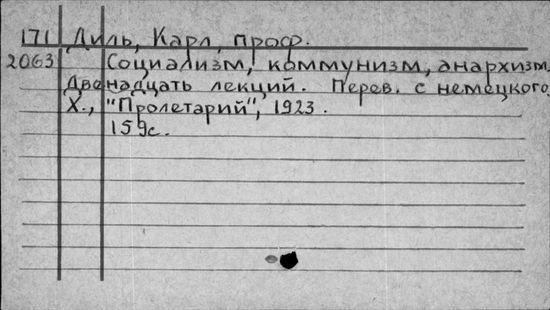 171 Диль, Карл, проф.
2063 Социализм, коммунизм, анархизм.
Двенадцать лекций. Перев. с немецкого.
Х., "Пролетарий", 1923.
159с.